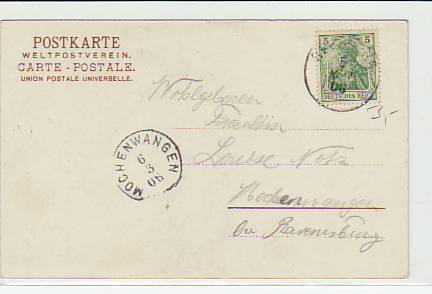 POSTKARTE
WELTPOSTVEREIN.
CARTE - POSTALE.
UNION POSTALE UNIVERSELLE.
5 5
DEUTSCHES REICH
Wohlgeboren
Fräulein
Louise Notz
MOCHENWANGEN
6
3
06
Mochenwangen
bei Ravensburg